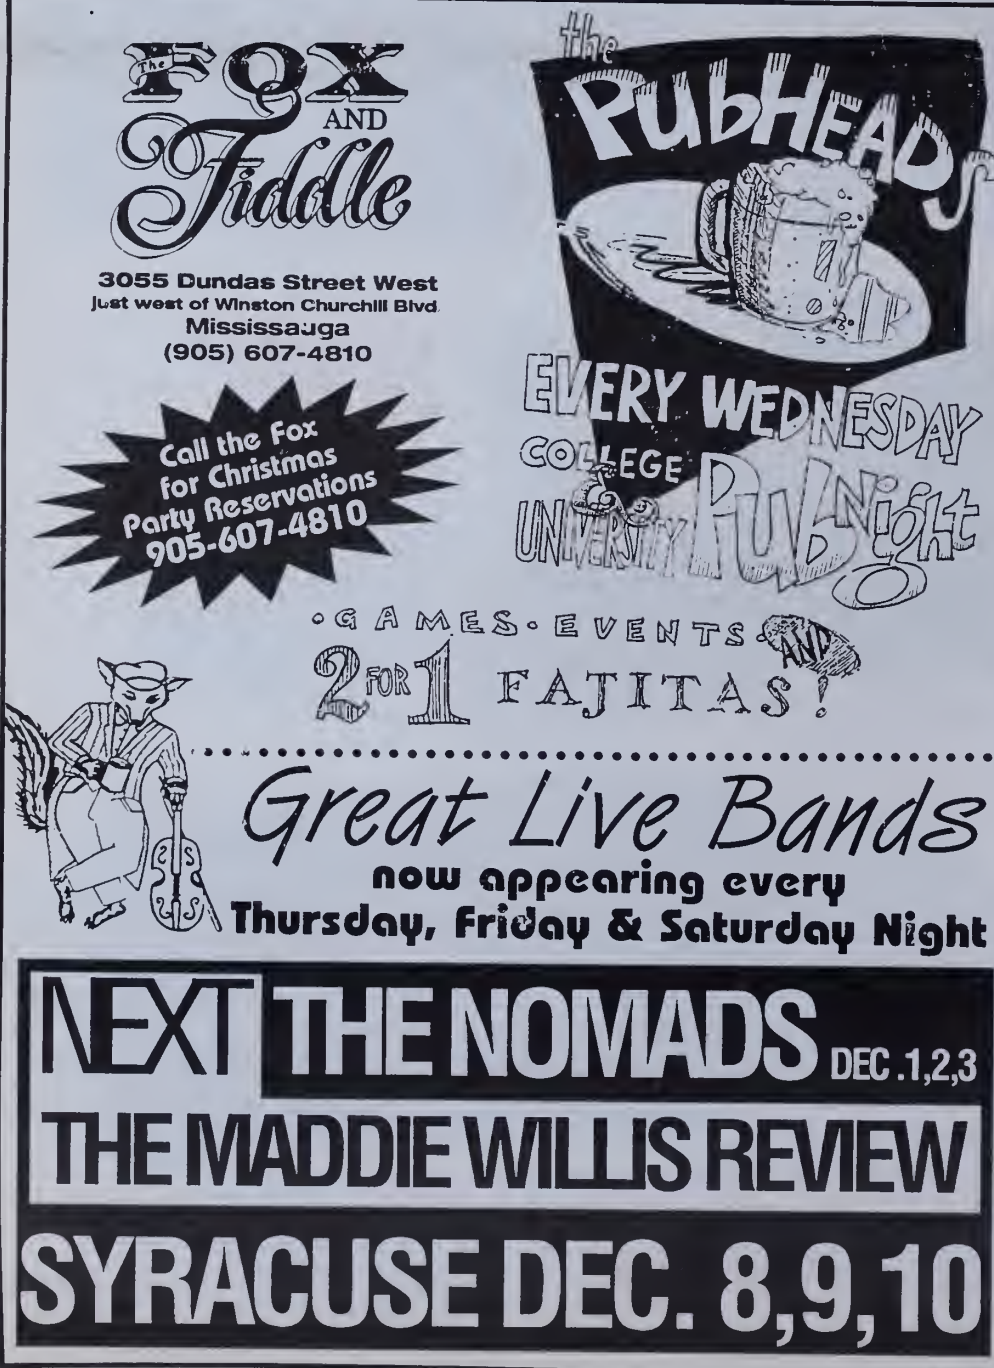 The
FOX
AND
Fiddle
3055 Dundas Street West
Just west of Winston Churchill Blvd.
Mississauga
(905) 607-4810
Call the Fox
for Christmas
Party Reservations
905-607-4810
the
PubHEADS
EVERY WEDNESDAY
COLLEGE &
UNIVERSITY PUb Night
•GAMES•EVENTS•AND
2 FOR 1 FAJITAS!
Great Live Bands
now appearing every
Thursday, Friday & Saturday Night
NEXT THE NOMADS DEC.1,2,3
THE MADDIE WILLIS REVIEW
SYRACUSE DEC. 8,9,10